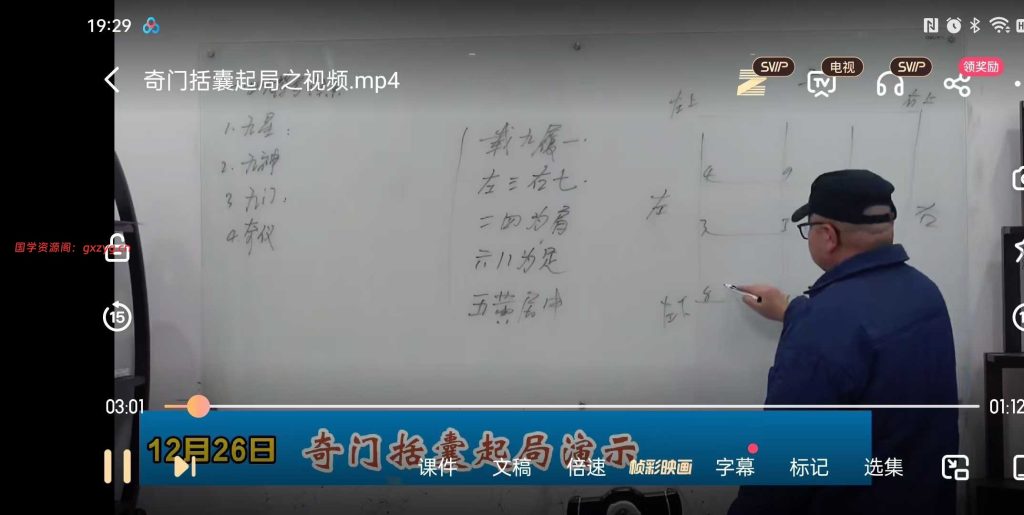 19:29
奇门括囊起局之视频.mp4
SVIP
电视
SVIP
领奖励
TV
1. 九星:
2. 九神
3 九门:
4 奇仪
戴九履一.
左三右七.
二四为肩
六八为足
五黄居中
左上
右上
4
9
左
3
右
左下
8
国学资源阁：gxzyg.cn
15
03:01
01:12
12月26日 奇门括囊起局演示
课件
文稿
倍速
帧彩映画
字幕
标记
选集